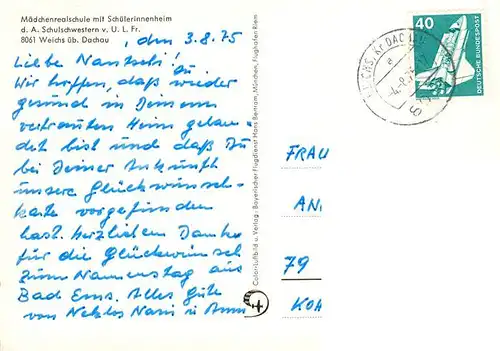 Mädchenrealschule mit Schülerinnenheim
d. A. Schulschwestern v. U. L. Fr.
8061 Weichs üb. Dachau
, den 3.8.75
Liebe
Wir hoffen, daß Du wieder
gesund in Deinem
vertrauten Heim gelan-
det bist und daß Du
bei Deiner Ankunft
unsere Glückwunsch-
karte vorgefunden
hast. Herzlichen Dank
für die Glückwünsche
zum Namenstag aus
Bad Ems. Alles Gute
von
Color-Luftbild u. Verlag: Bayerischer Flugdienst Hans Bertram, München, Flughafen Riem
40
DEUTSCHE BUNDESPOST
WEICHS, Kr DACHAU
a
FRAU
AN
79
KOH